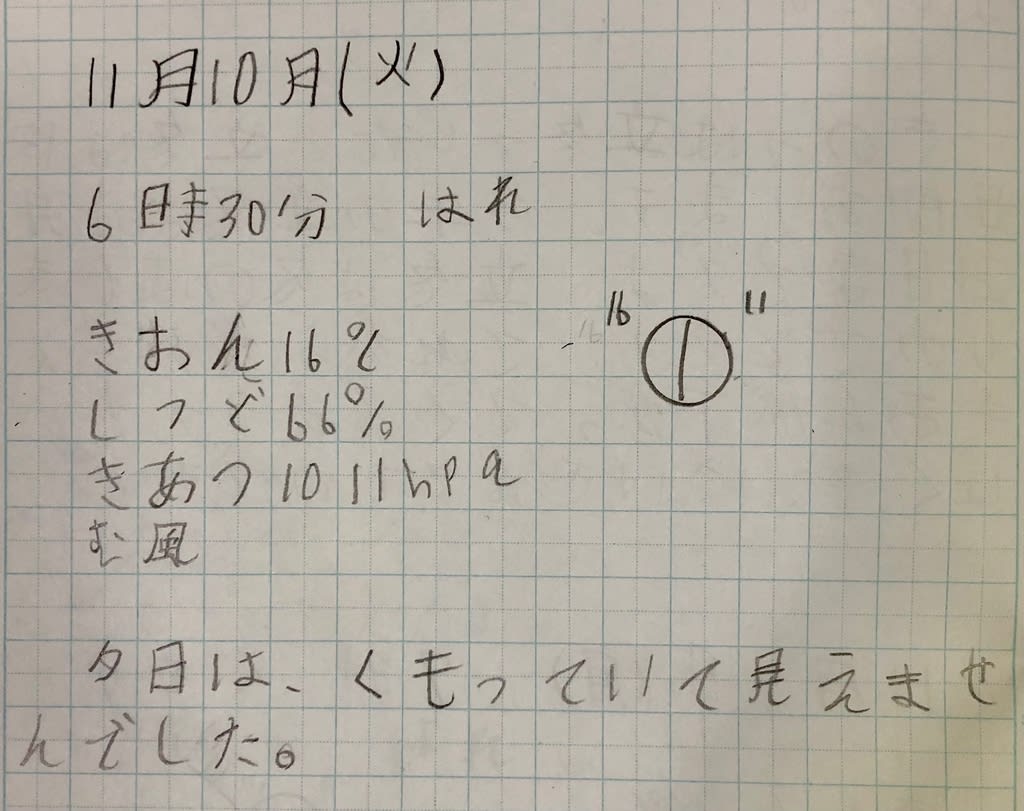 11月10月(火)
6時30分 はれ
きおん16℃
16 11
しつど66%
きあつ1011hpa
む風
夕日は、くもっていて見えませ
んでした。